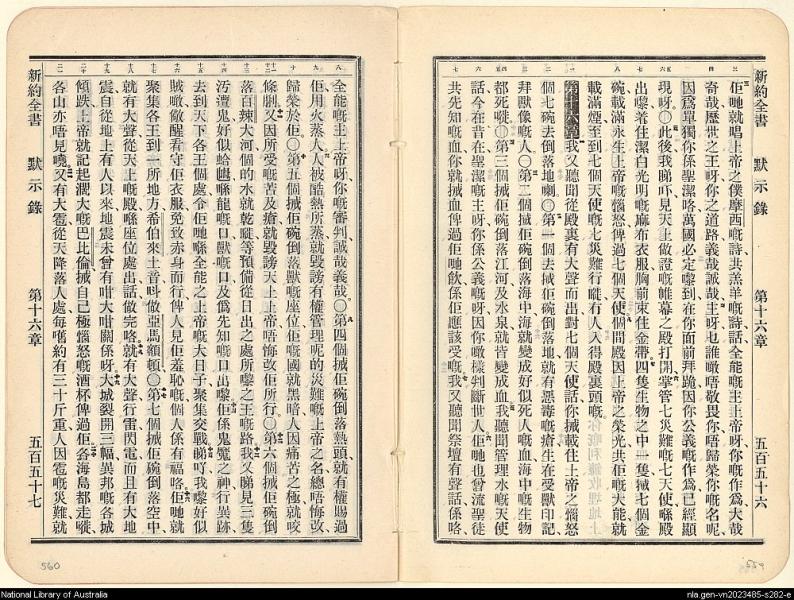 新約全書 默示錄 第十六章 五百五十六
佢哋就唱上帝之僕摩西嘅詩共羔羊嘅詩話全能嘅主上帝呀你嘅作爲大哉
奇哉歷世之王呀你之道路義哉誠哉主呀乜誰噉唔敬畏你唔歸榮你嘅名呢
因爲單獨你係聖潔咯萬國必定嚟到在你面前拜跪因你公義嘅作爲已經顯
現呀○此後我睇吓見天上做證嘅帷幕之殿打開掌管七災難嘅七天使喺殿
出嚟着住潔白光明嘅麻布衣服胸前束住金帶四隻生物之中一隻摵七個金
碗載滿永生上帝嘅惱怒俾過七個天使個間殿因上帝之榮光共佢嘅大能就
載滿煙至到七個天使嘅七災難行嘥有人入得殿裏頭嘅
第十六章我又聽聞從殿裏有大聲而出對七個天使話你摵載住上帝之惱怒
個七碗去倒落地喇○第一個去摵佢碗倒落地就有惡毒嘅瘡生在受獸印記
拜獸像嘅人○第二個摵佢碗倒落海中海就變成好似死人嘅血海中嘅生物
都死嘥○第三個摵佢碗倒落江河及水泉就皆變成血我聽聞管理水嘅天使
話今在昔在聖潔嘅主呀你係公義嘅呀因你噉樣判斷世人佢哋也曾流聖徒
共先知嘅血你就摵血俾過佢哋飲係佢應該受嘅我又聽聞祭壇有聲話係咯
全能嘅主上帝呀你嘅審判誠哉義哉○第四個摵佢碗倒落熱頭就有權賜過
佢用火蒸人人被酷熱所蒸就毀謗有權管理呢的災難嘅上帝之名總唔悔改
歸榮於佢○第五個摵佢碗倒落獸嘅座位佢嘅國就黑暗人因痛苦之極就咬
條脷又因所受嘅苦及瘡就毀謗天上上帝唔悔改佢所行○第六個摵佢碗倒
落百辣大河個的水就乾嘥等預備從日出之處所嚟之王嘅路我又睇見三隻
污濁鬼好似蛤乸喺龍嘅口獸嘅口及僞先知嘅口出嚟佢係鬼魔之神行異跡
去到天下各王個處令佢哋喺全能之上帝嘅大日子聚集交戰睇吖我嚟好似
賊噉儆醒看守佢衣服免致赤身而行俾人見佢羞恥嘅個人係有福咯佢哋就
聚集各王到一所地方希伯來土音叫做亞馬額頓○第七個摵佢碗倒落空中
就有大聲從天上嘅殿喺座位處出話做完咯就有大聲行雷閃電而且有大地
震自從地上有人以來地震未曾有咁大咁關係呀大城裂開三幅異邦嘅各城
傾跌上帝就記起濶大嘅巴比倫摵自己極惱怒嘅酒杯俾過佢各海島都走嘥
各山亦唔見嘵又有大雹從天降落人處每嚿約有三十斤重人因雹嘅災難就
新約全書 默示錄 第十六章 五百五十七
560
559
National Library of Australia
nla.gen-vn2023485-s282-e